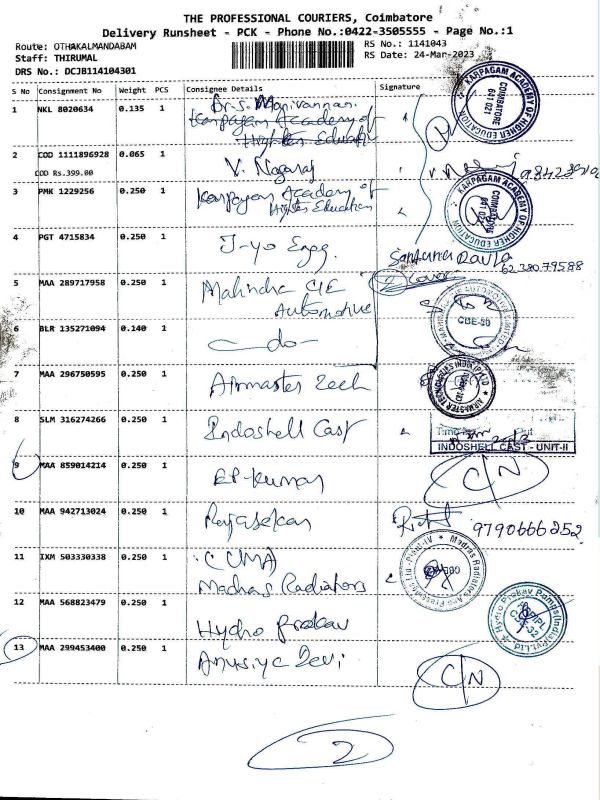 THE PROFESSIONAL COURIERS, Coimbatore
Delivery Runsheet - PCK - Phone No.:0422-3505555 - Page No.:1
Route: OTHAKALMANDABAM
RS No.: 1141043
Staff: THIRUMAL
RS Date: 24-Mar-2023
DRS No.: DCJB114104301
S No Consignment No Weight PCS Consignee Details Signature
1 NKL 8020634 0.135 1 Dr. S. Manivannan
Karpagam Academy of
Higher Education
KARPAGAM ACADEMY OF HIGHER EDUCATION
COIMBATORE
641 021
2 COD 1111896928 0.065 1 V. Nagaraj
COD Rs.399.00
3 PMK 1229256 0.250 1 Karpagam Academy of
Higher Education
KARPAGAM ACADEMY OF HIGHER EDUCATION
COIMBATORE
641 021
4 PGT 4715834 0.250 1 J-yo Engg.
6238079588
5 MAA 289717958 0.250 1 Mahindra CIE
Automotive
2 Cover
CBE-50
6 BLR 135271094 0.140 1 do
7 MAA 296750595 0.250 1 Airmaster Tech
8 SLM 316274266 0.250 1 Indoshell Cast
INDOSHELL CAST - UNIT-II
9 MAA 859014214 0.250 1 EP-Kumar
C/N
10 MAA 942713024 0.250 1 Rajasekar
9790666252
11 IXM 503330338 0.250 1 CUMA
Madras Radiators
12 MAA 568823479 0.250 1 Hydro Prokav
13 MAA 299453400 0.250 1 Anusiya Devi
C/N
2